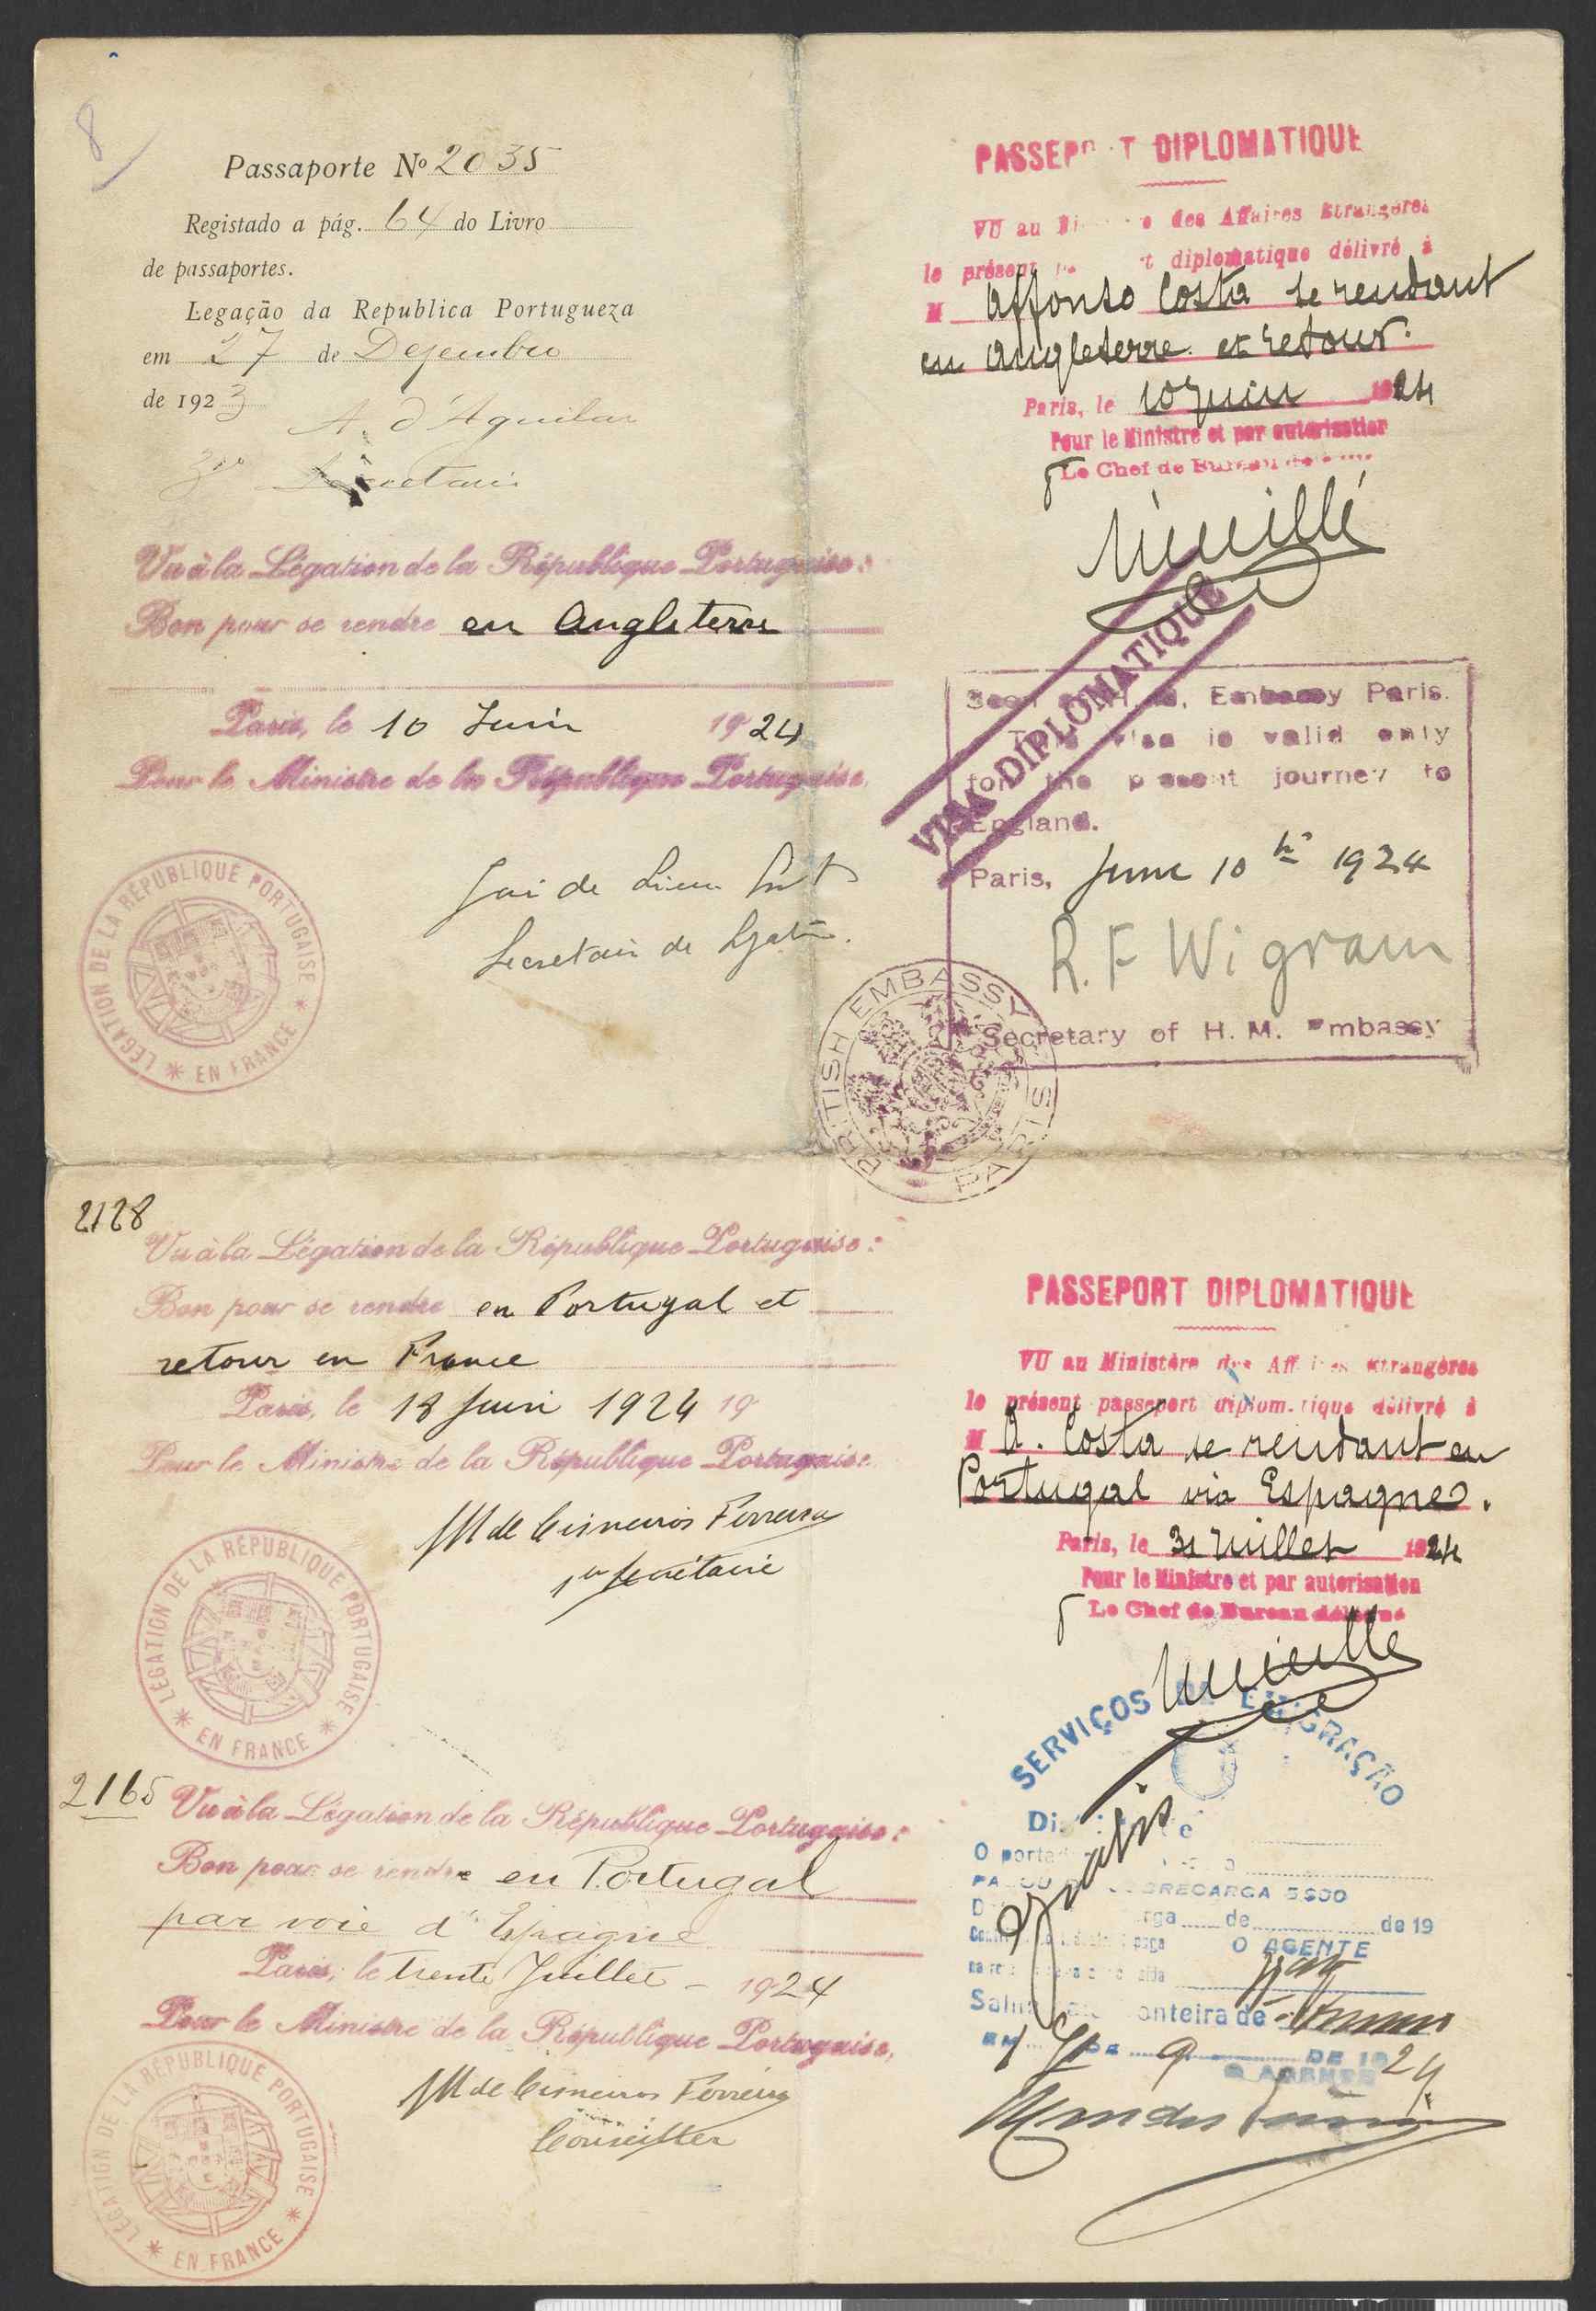 8
Passaporte Nº 2035
Registado a pág. 64 do Livro
de passaportes.
Legação da Republica Portugueza
em 27 de Dezembro
de 1923
A. d'Aguilar
Vu à la Légation de la République Portugaise:
Bon pour se rendre en Angleterre
Paris, le 10 Juin 1924
Pour le Ministre de la République Portugaise,
Secretaire de
LÉGATION DE LA RÉPUBLIQUE PORTUGAISE
* EN FRANCE *
PASSEP T DIPLOMATIQUE
VU au des Affaires Etrangères
le présent diplomatique délivré à
M Affonso Costa se rendant
en Angleterre et retour.
Paris, le 10 Juin 1924
Pour le Ministre et par autorisation
Le Chef de Bureau
VISA DIPLOMATIQUE
Seen at H.M. Embassy Paris.
This visa is valid only
for the present journey to
England.
Paris, June 10th 1924
R. F Wigram
Secretary of H. M. Embassy
BRITISH EMBASSY
PARIS
2128
Vu à la Légation de la République Portugaise:
Bon pour se rendre en Portugal et
retour en France
Paris, le 18 Juin 1924 19
Pour le Ministre de la République Portugaise
M de Cisneiros Ferreira
1er Secrétaire
LÉGATION DE LA RÉPUBLIQUE PORTUGAISE
* EN FRANCE *
2165
Vu à la Légation de la République Portugaise:
Bon pour se rendre en Portugal
par voie d'Espagne
Paris, le trente Juillet - 1924
Pour le Ministre de la République Portugaise,
M de Cisneiros Ferreira
Conseiller
LÉGATION DE LA RÉPUBLIQUE PORTUGAISE
* EN FRANCE *
PASSEPORT DIPLOMATIQUE
VU au Ministère des Affaires Etrangères
le présent passeport diplomatique délivré à
M A. Costa se rendant en
Portugal via Espagne.
Paris, le 31 Juillet 1924
Pour le Ministre et par autorisation
Le Chef de Bureau délégué
SERVIÇOS DE EMIGRAÇÃO
Gratis
O
SOBRECARGA 5$00
de de 19
O AGENTE
onteira de
9 DE 1924
O AGENTE
Mendes